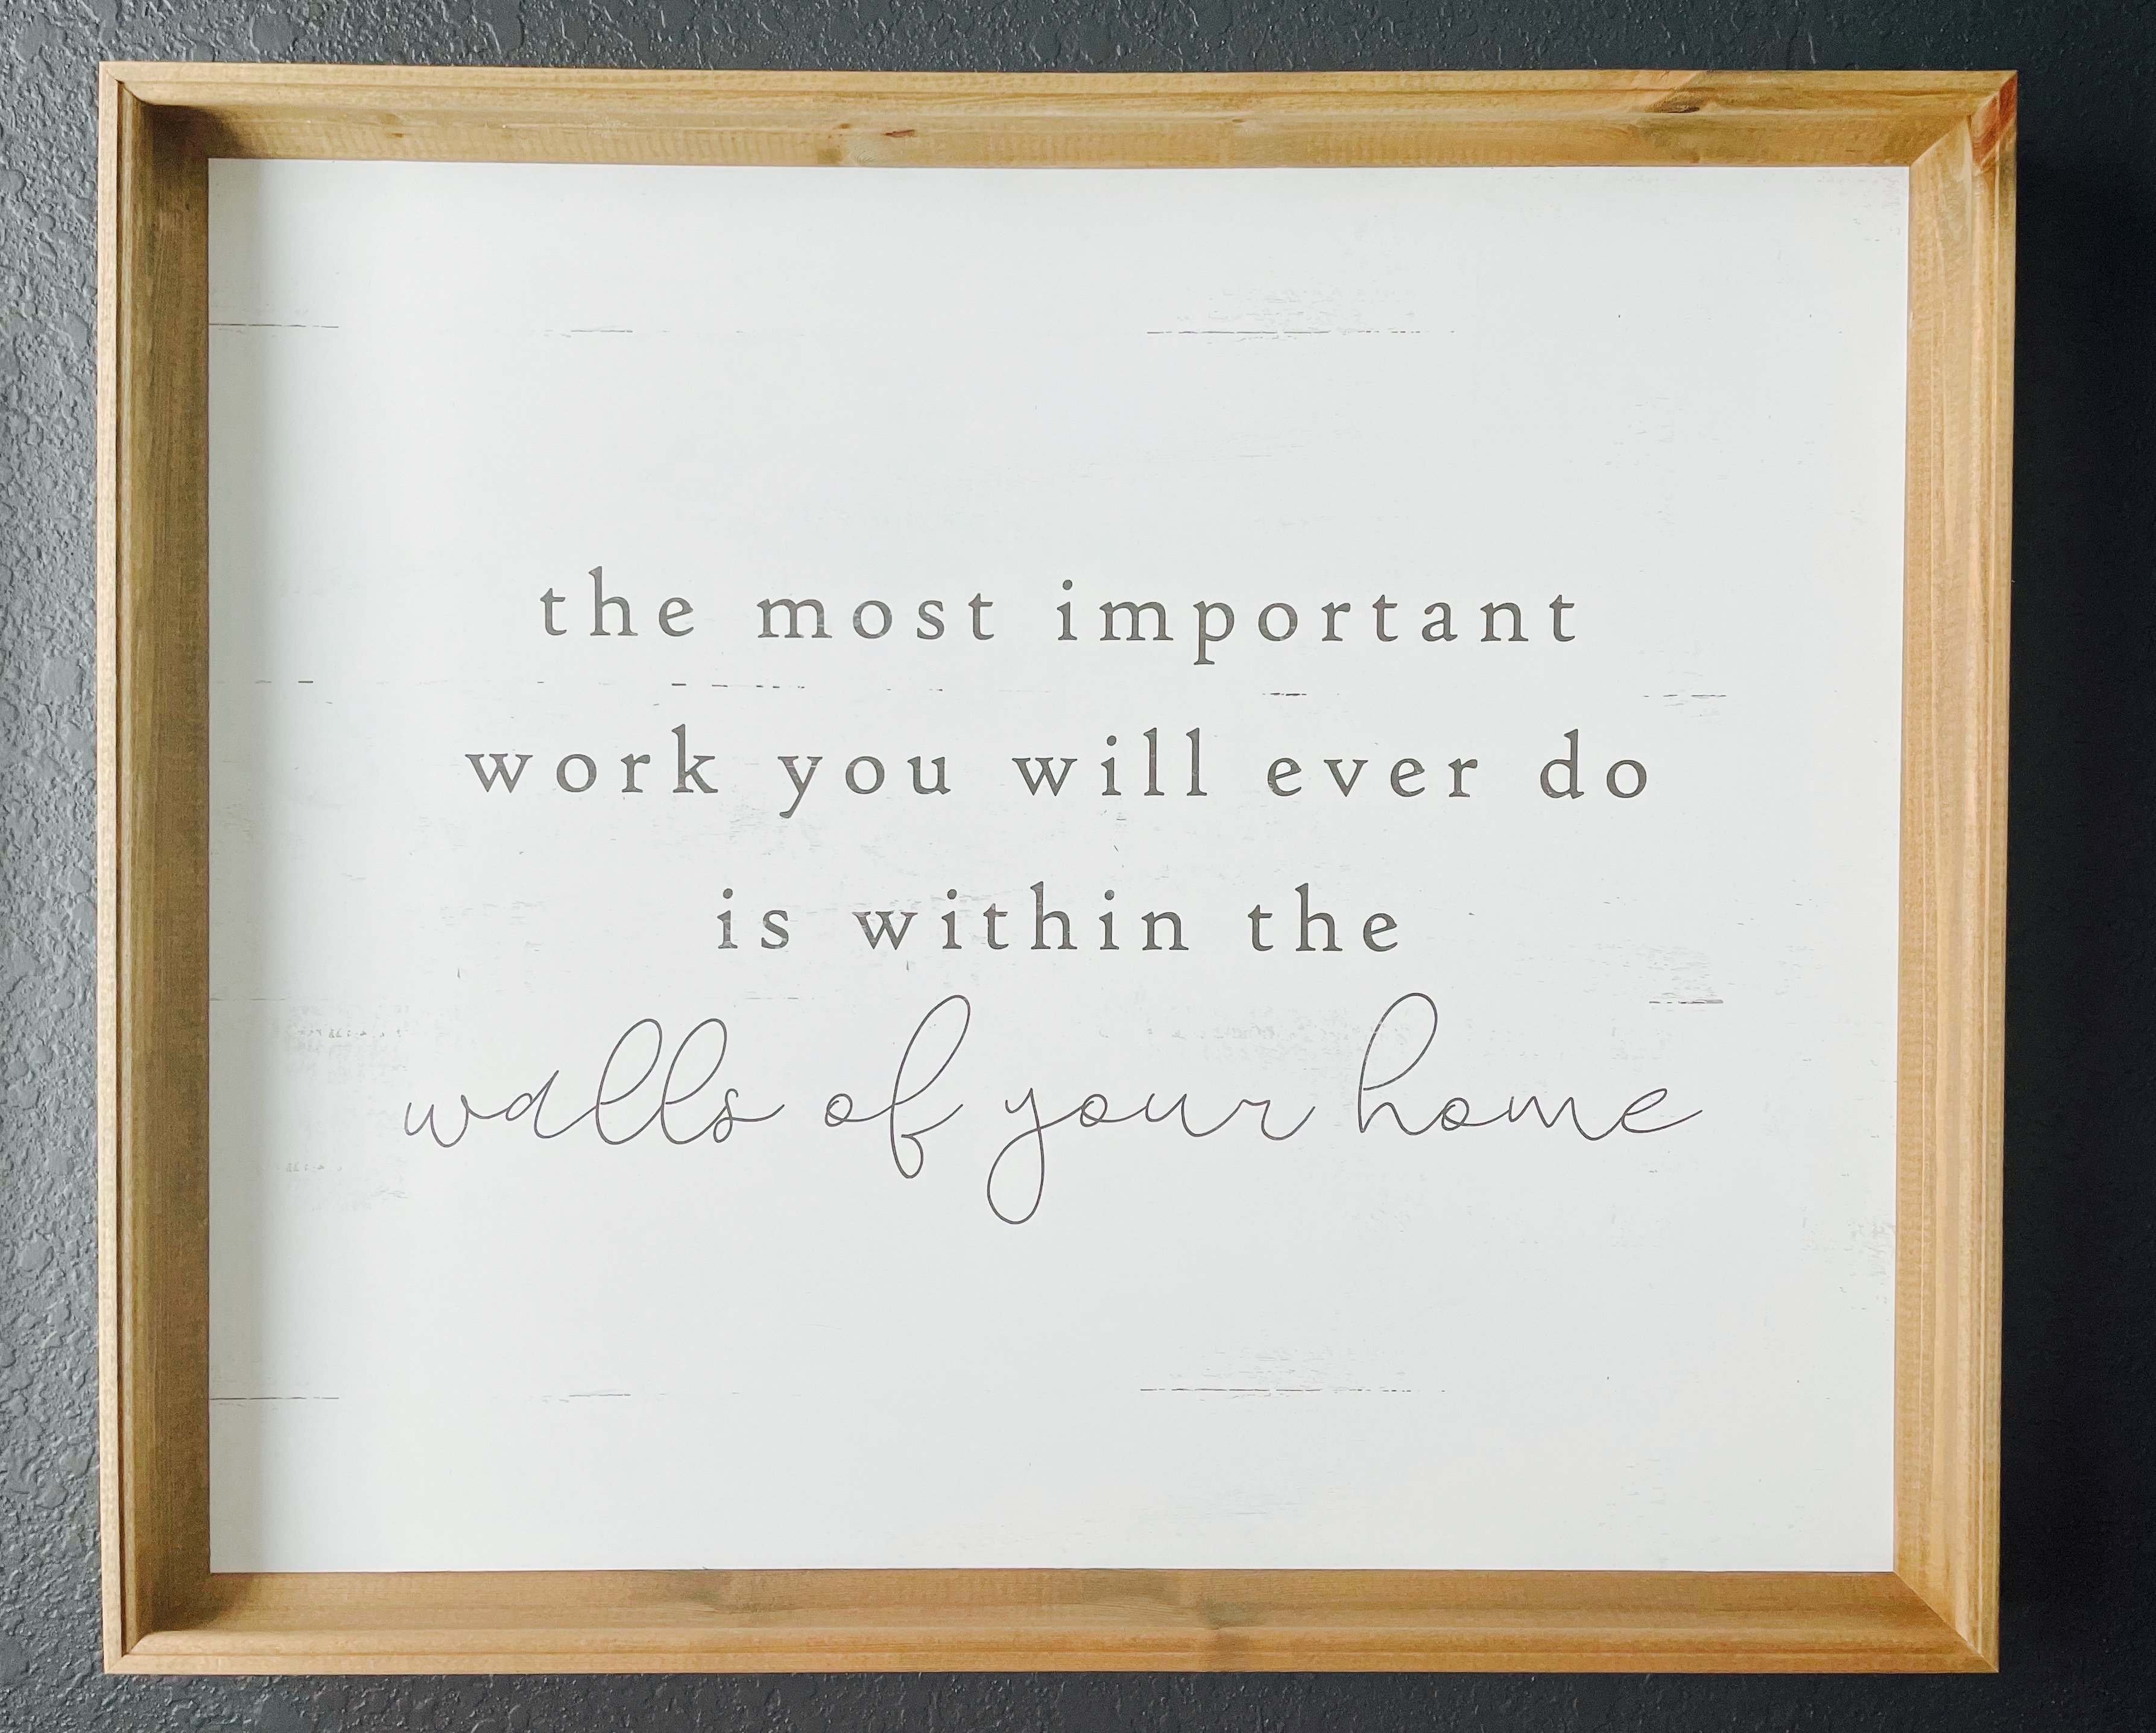 the most important
work you will ever do
is within the
walls of your home